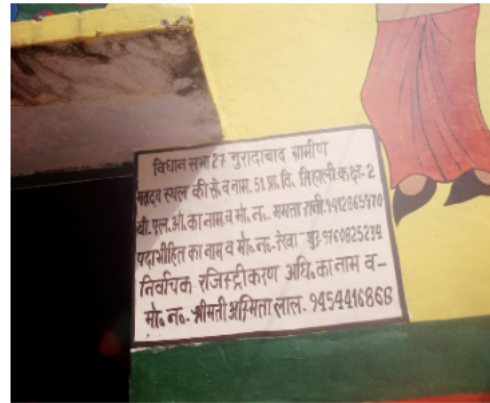 विधान सभा 27 मुरादाबाद ग्रामीण
मतदय स्थल की सं. व नाम. 51 प्रा. वि. तिहाली कक्ष-2
बी. एल. ओ. का नाम व मो. न.. ममता रानी. 9412865970
पदाभीहित का नाम व मो. न. रेखा 9760825239
निर्वाचक रजिस्ट्रीकरण अधि. का नाम व-
मो. न.. श्रीमती अस्मिता लाल. 9454416868